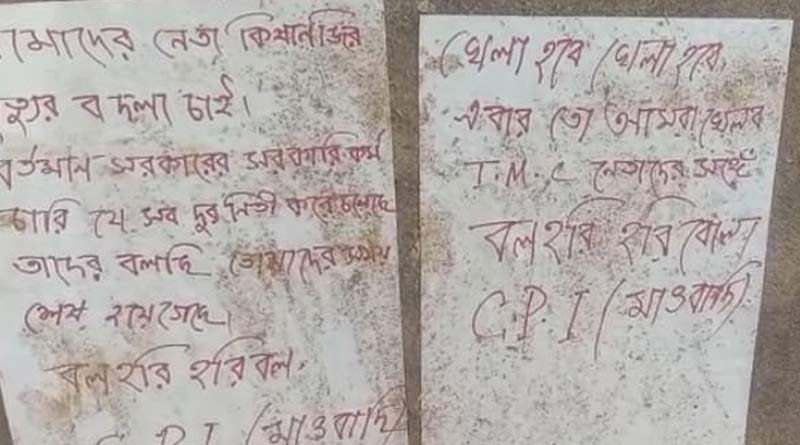 মাদের নেতা কিষানজির
ত্যুর বদলা চাই।
বর্তমান সরকারের সরকারি কর্ম
চারি যে সব দুর্নিতী করে চলেছে
তাদের বলছি তোমাদের সময়
শেষ হয়ে গেছে।
বল হরি হরি বল.
C.P.I (মাওবাদি)
খেলা হবে খেলা হবে,
এবার তো আমরা খেলব
T.M.C নেতাদের সঙ্গে
বল হরি হরি বোল
C.P.I (মাওবাদি)